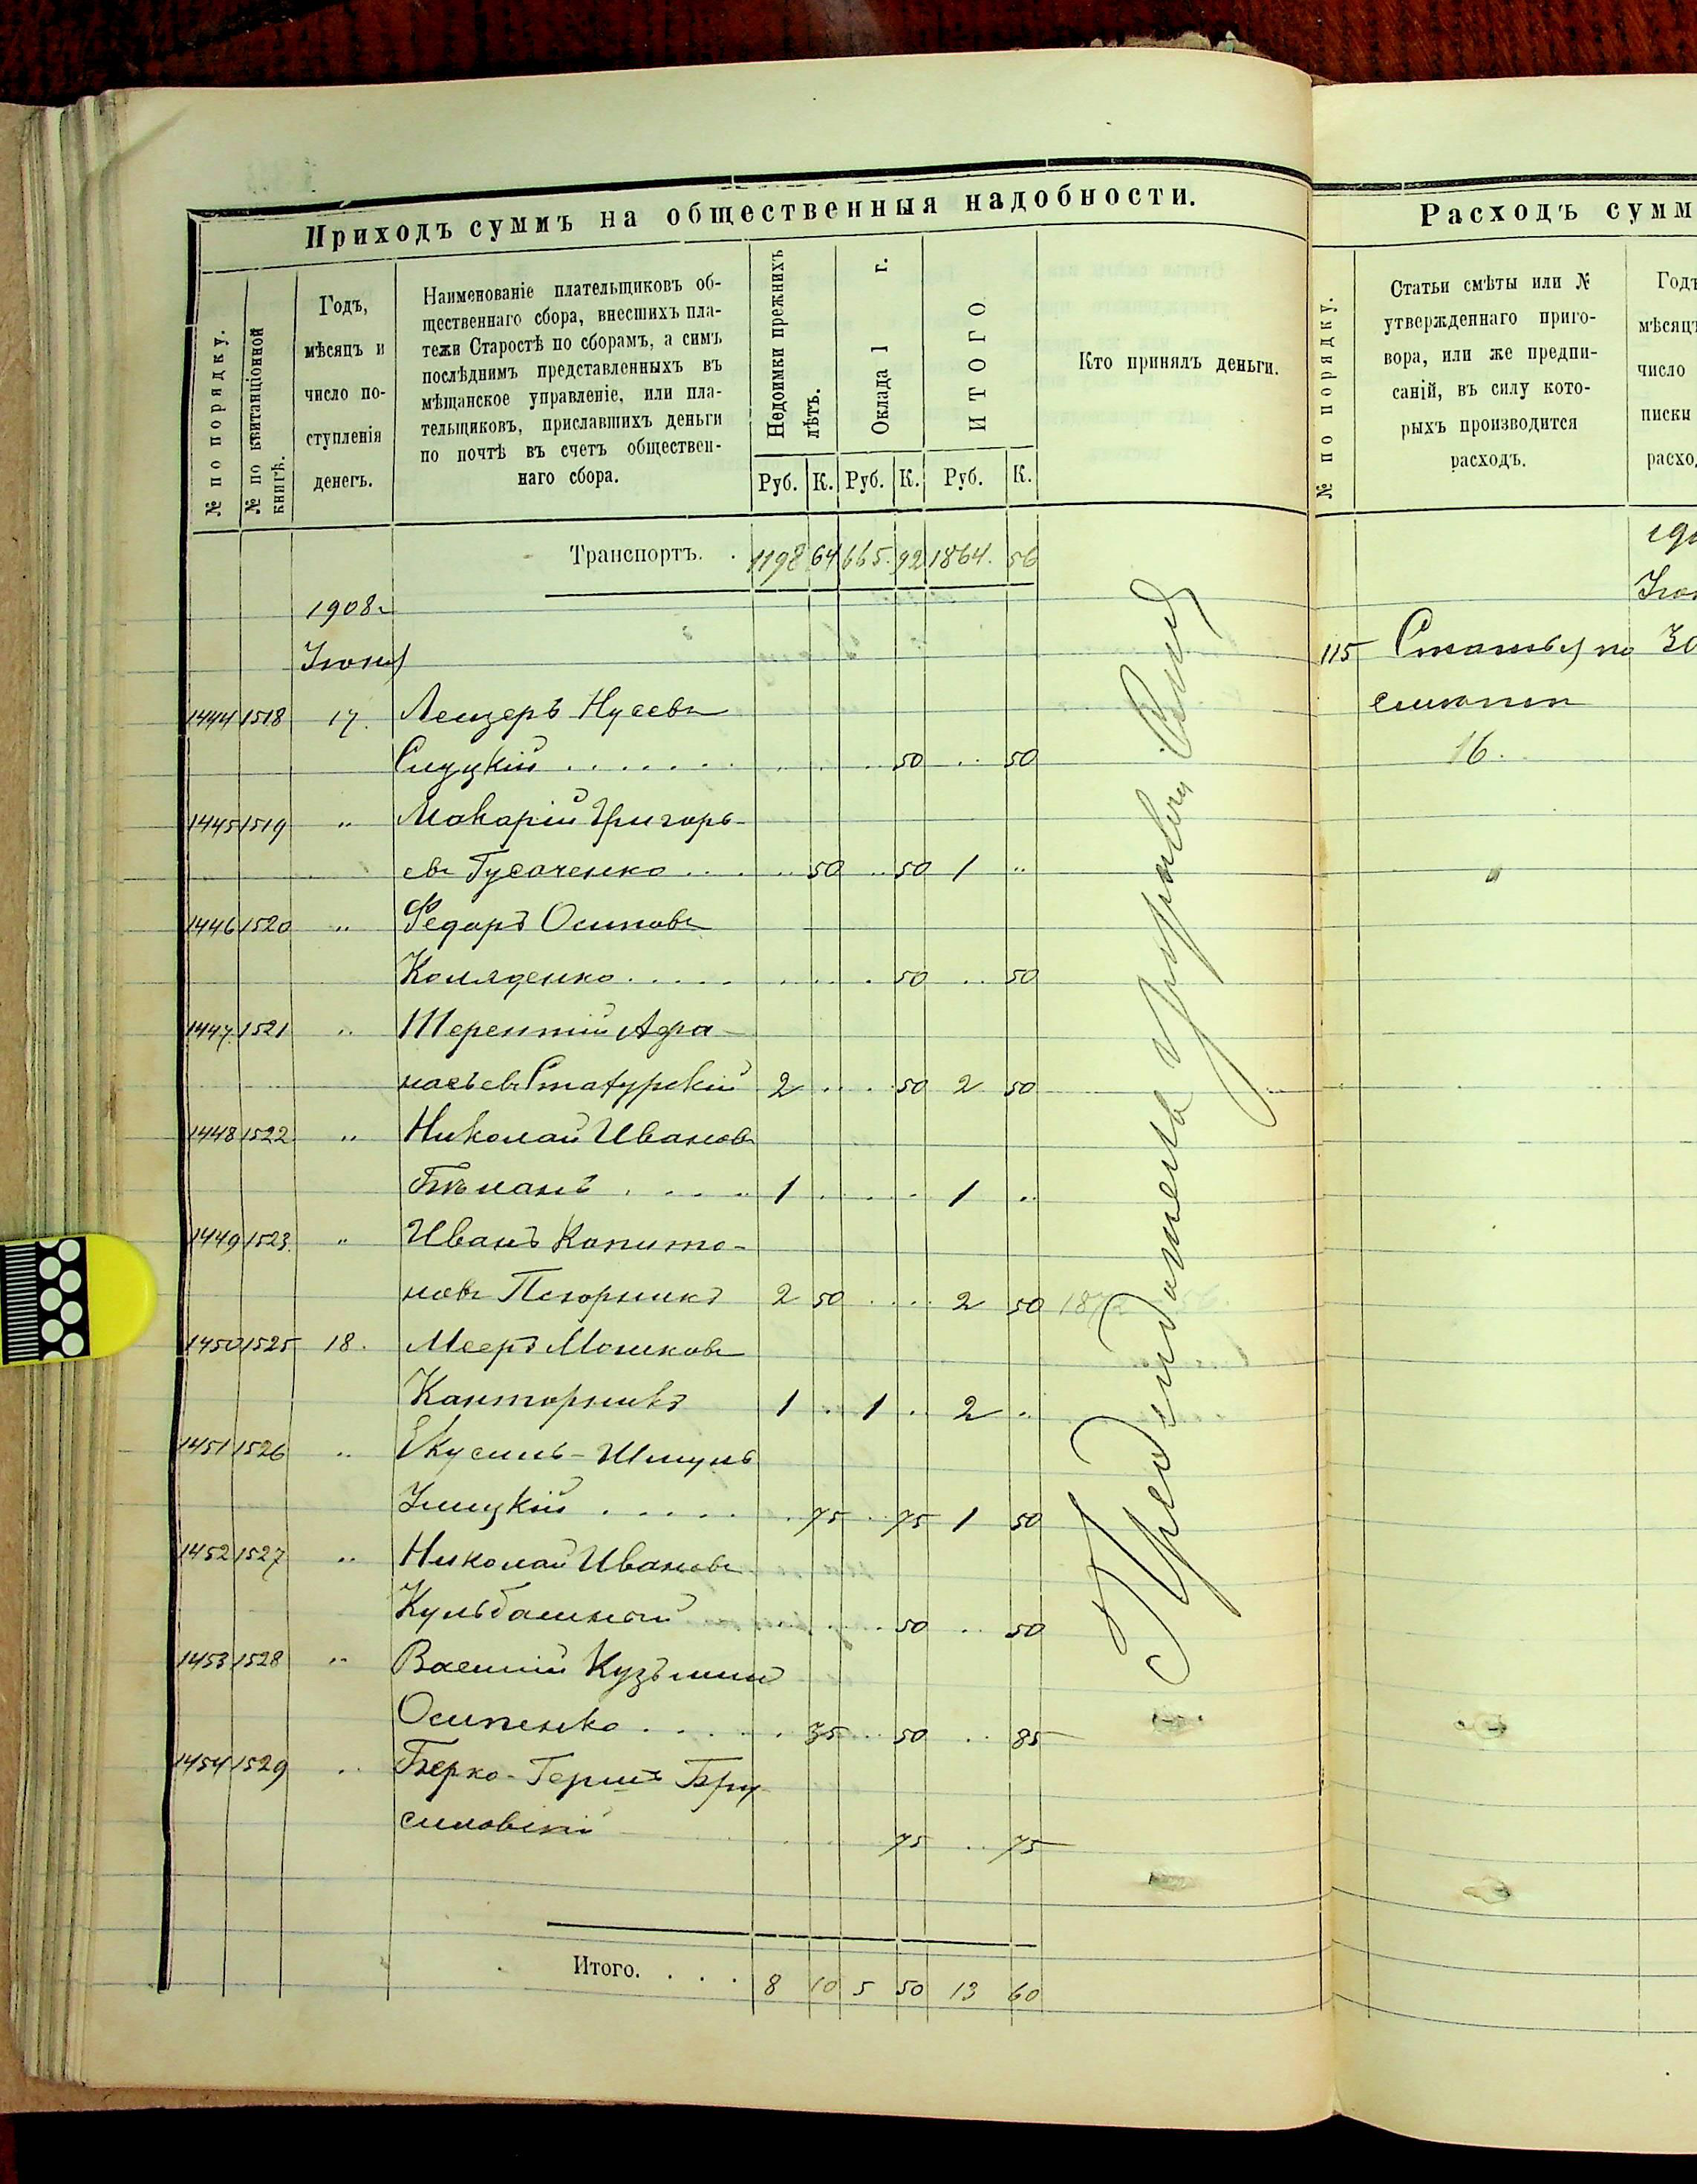 Приходъ суммъ на общественныя надобности.
№ по порядку.
№ по квитанціонной книгѣ.
Годъ,
мѣсяцъ и
число по-
ступленія
денегъ.
Наименованіе плательщиковъ об-
щественнаго сбора, внесшихъ пла-
тежи Старостѣ по сборамъ, а симъ
послѣднимъ представленныхъ въ
мѣщанское управленіе, или пла-
тельщиковъ, приславшихъ деньги
по почтѣ въ счетъ обществен-
наго сбора.
Недоимки прежнихъ лѣтъ.
Оклада 1 г.
ИТОГО
Кто принялъ деньги.
Руб. К. Руб. К. Руб. К.
Транспортъ. . 1198 64 665. 92 1864. 56
1908 г
Іюня
1444 1518 17. Лейзеръ Нусевъ
Слуцкій . . . . . . . 50 .. 50
1445 1519 " Макарій Григорь-
евъ Гусаченко . . . 50 .. 50 1 "
1446 1520 " Федоръ Осиповъ
Коляденко . . . . . 50 .. 50
1447. 1521 " Терентій Афа-
насьевъ 2 . . 50 2 50
1448 1522 " Николай Ивановъ
1 . . . . 1 "
1449 1523. " Иванъ Капито-
новъ 2 50 . . . 2 50
1450 1525 18. Мееръ Мошковъ
Канторникъ 1 . 1 . 2 "
1451 1526 " Екусиль-Шмуль
Ілицкій . . . . . 75 .. 75 1 50
1452 1527 " Николай Ивановъ
Кульбашный . . . . 50 .. 50
1453 1528 " Василій Кузьминъ
Осипенко . . . . . 35 .. 50 .. 85
1454 1529 " Берко-Гершъ Бру
силовскій 75 .. 75
Итого. . . . 8 10 5 50 13 60
Расходъ сумм
№ по порядку.
Статьи смѣты или №
утвержденнаго приго-
вора, или же предпи-
саній, въ силу кото-
рыхъ производится
расходъ.
Годъ
мѣсяцъ
число
писки
расхо
115 Статья по
смѣтѣ
16.